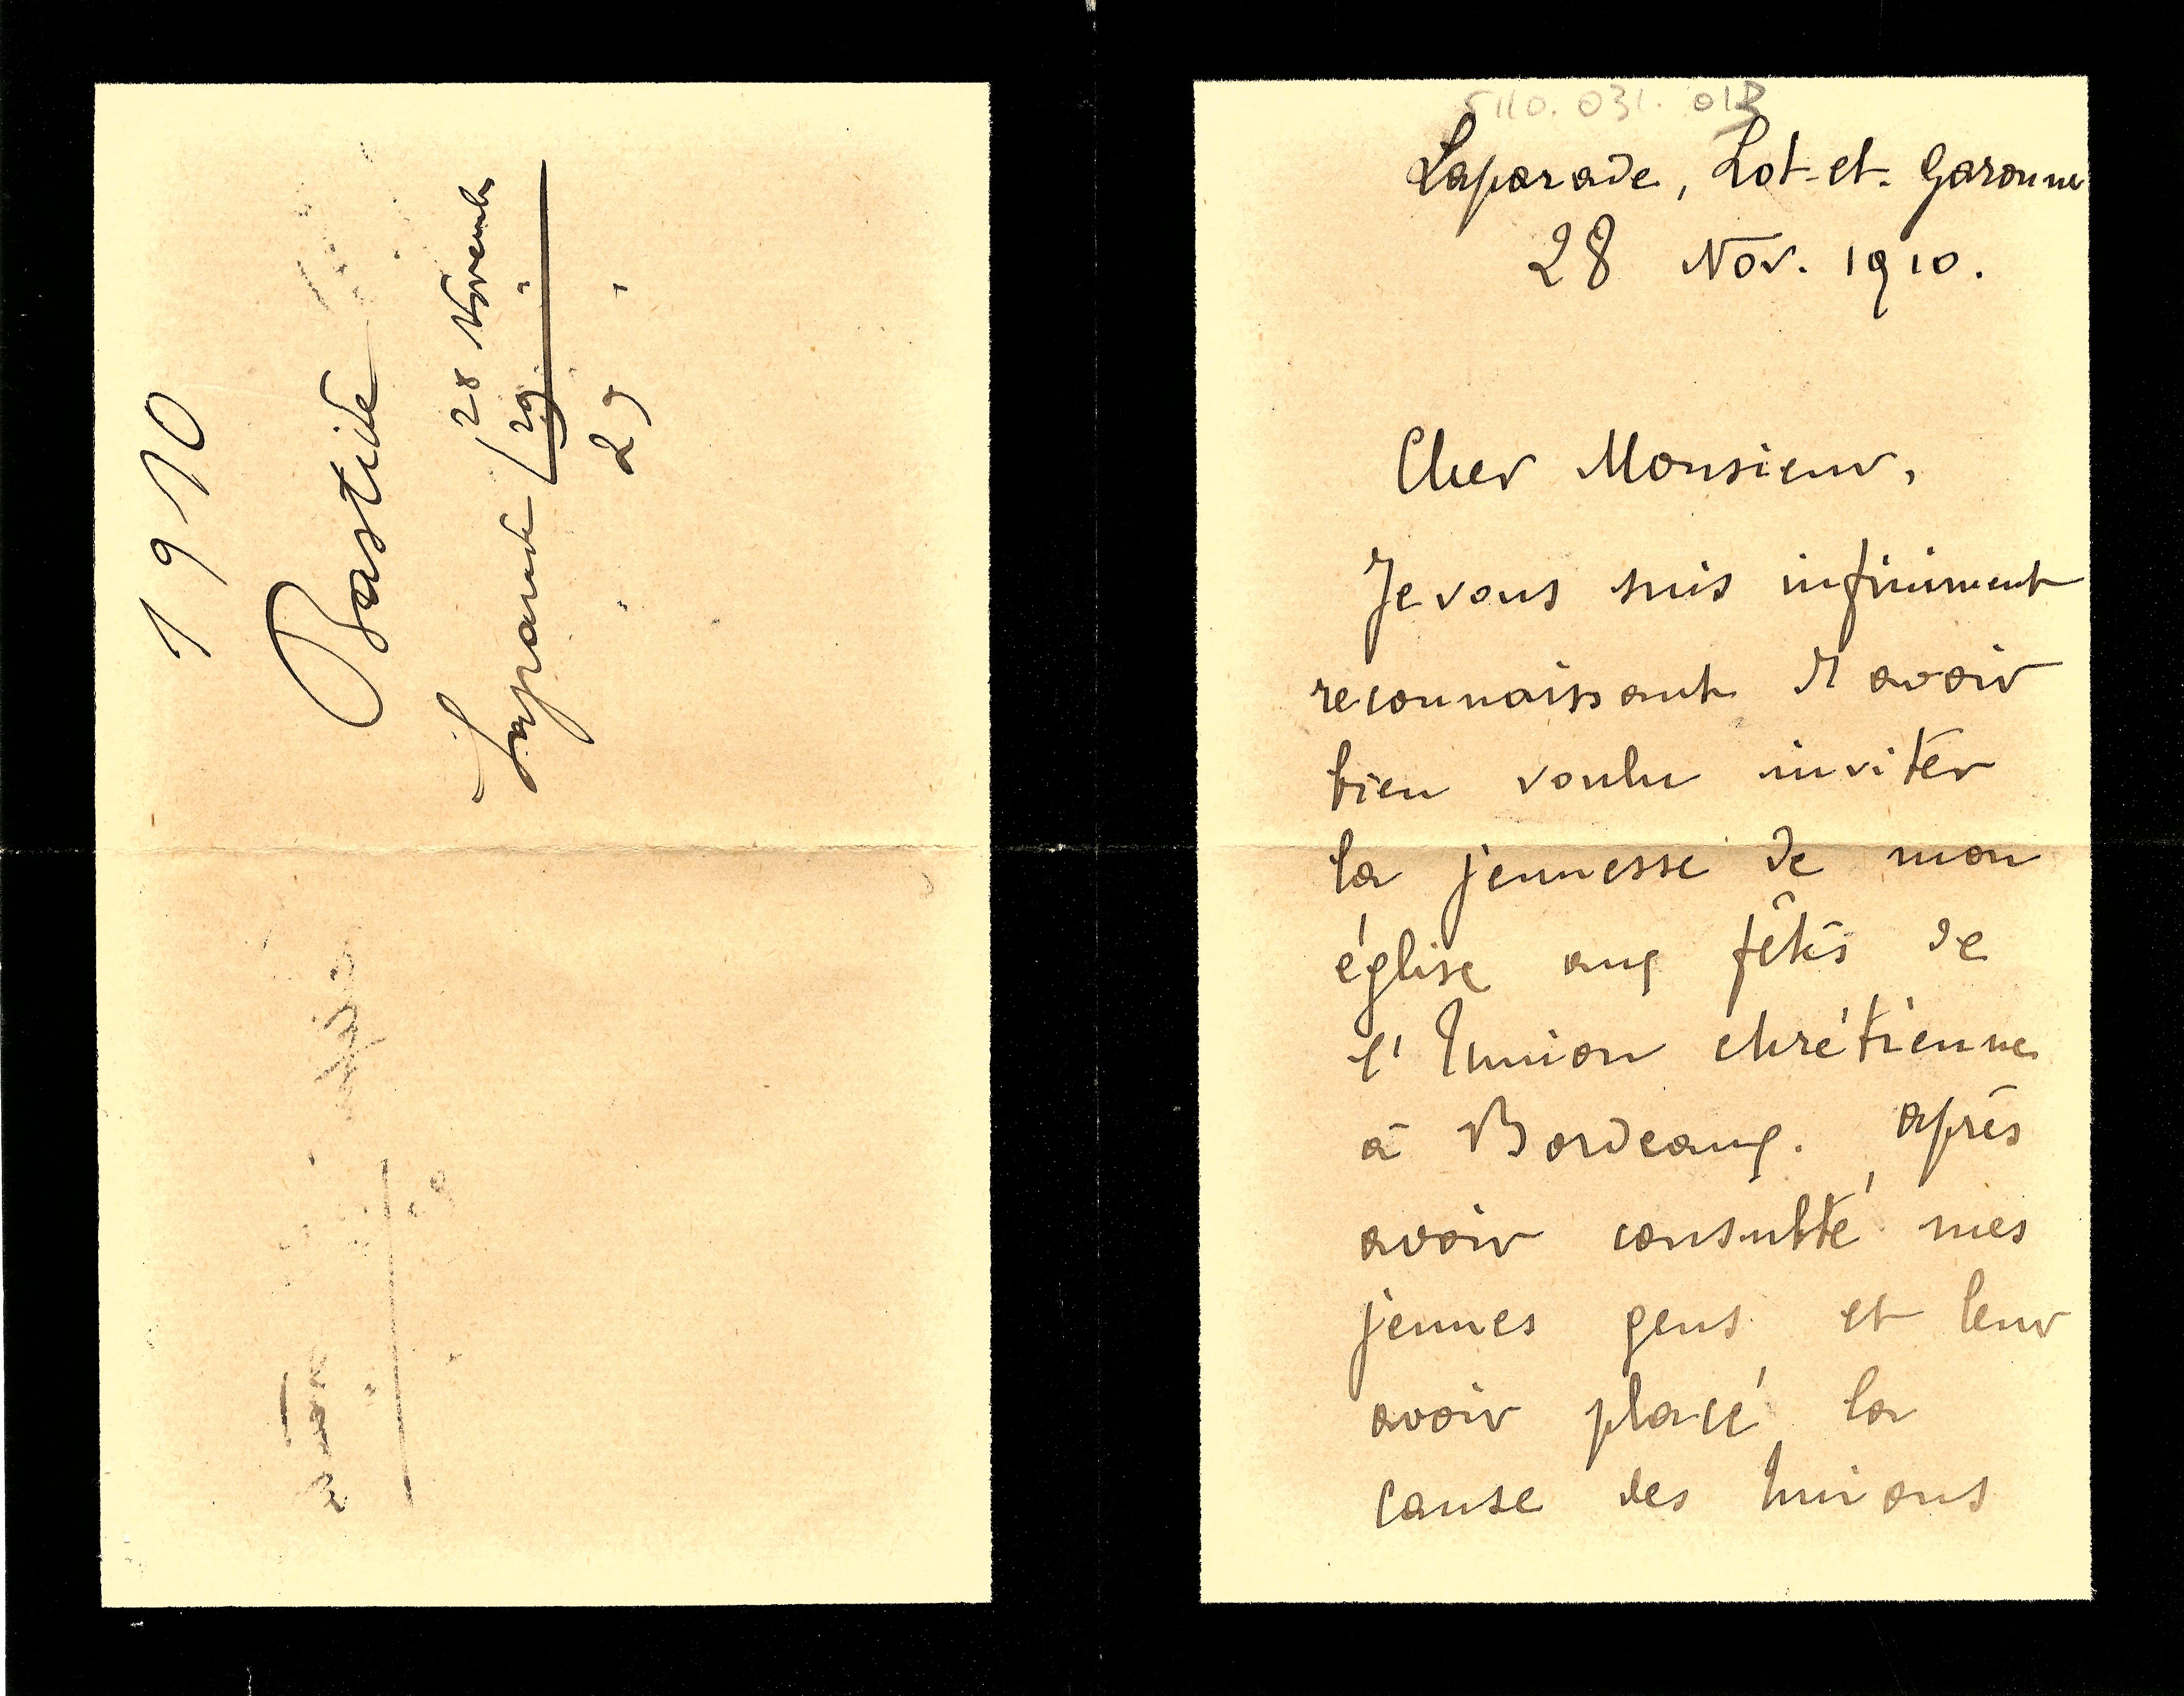 1910
Bastide
Laparade 28 Novembre
29 "
" 29 "
5110.031.013
Laparade, Lot-et-Garonne
28 Nov. 1910.
Cher Monsieur,
Je vous suis infiniment
reconnaissant d'avoir
bien voulu inviter
la jeunesse de mon
église aux fêtes de
l'Union chrétienne
à Bordeaux. Après
avoir consulté mes
jeunes gens et leur
avoir placé la
cause des Unions